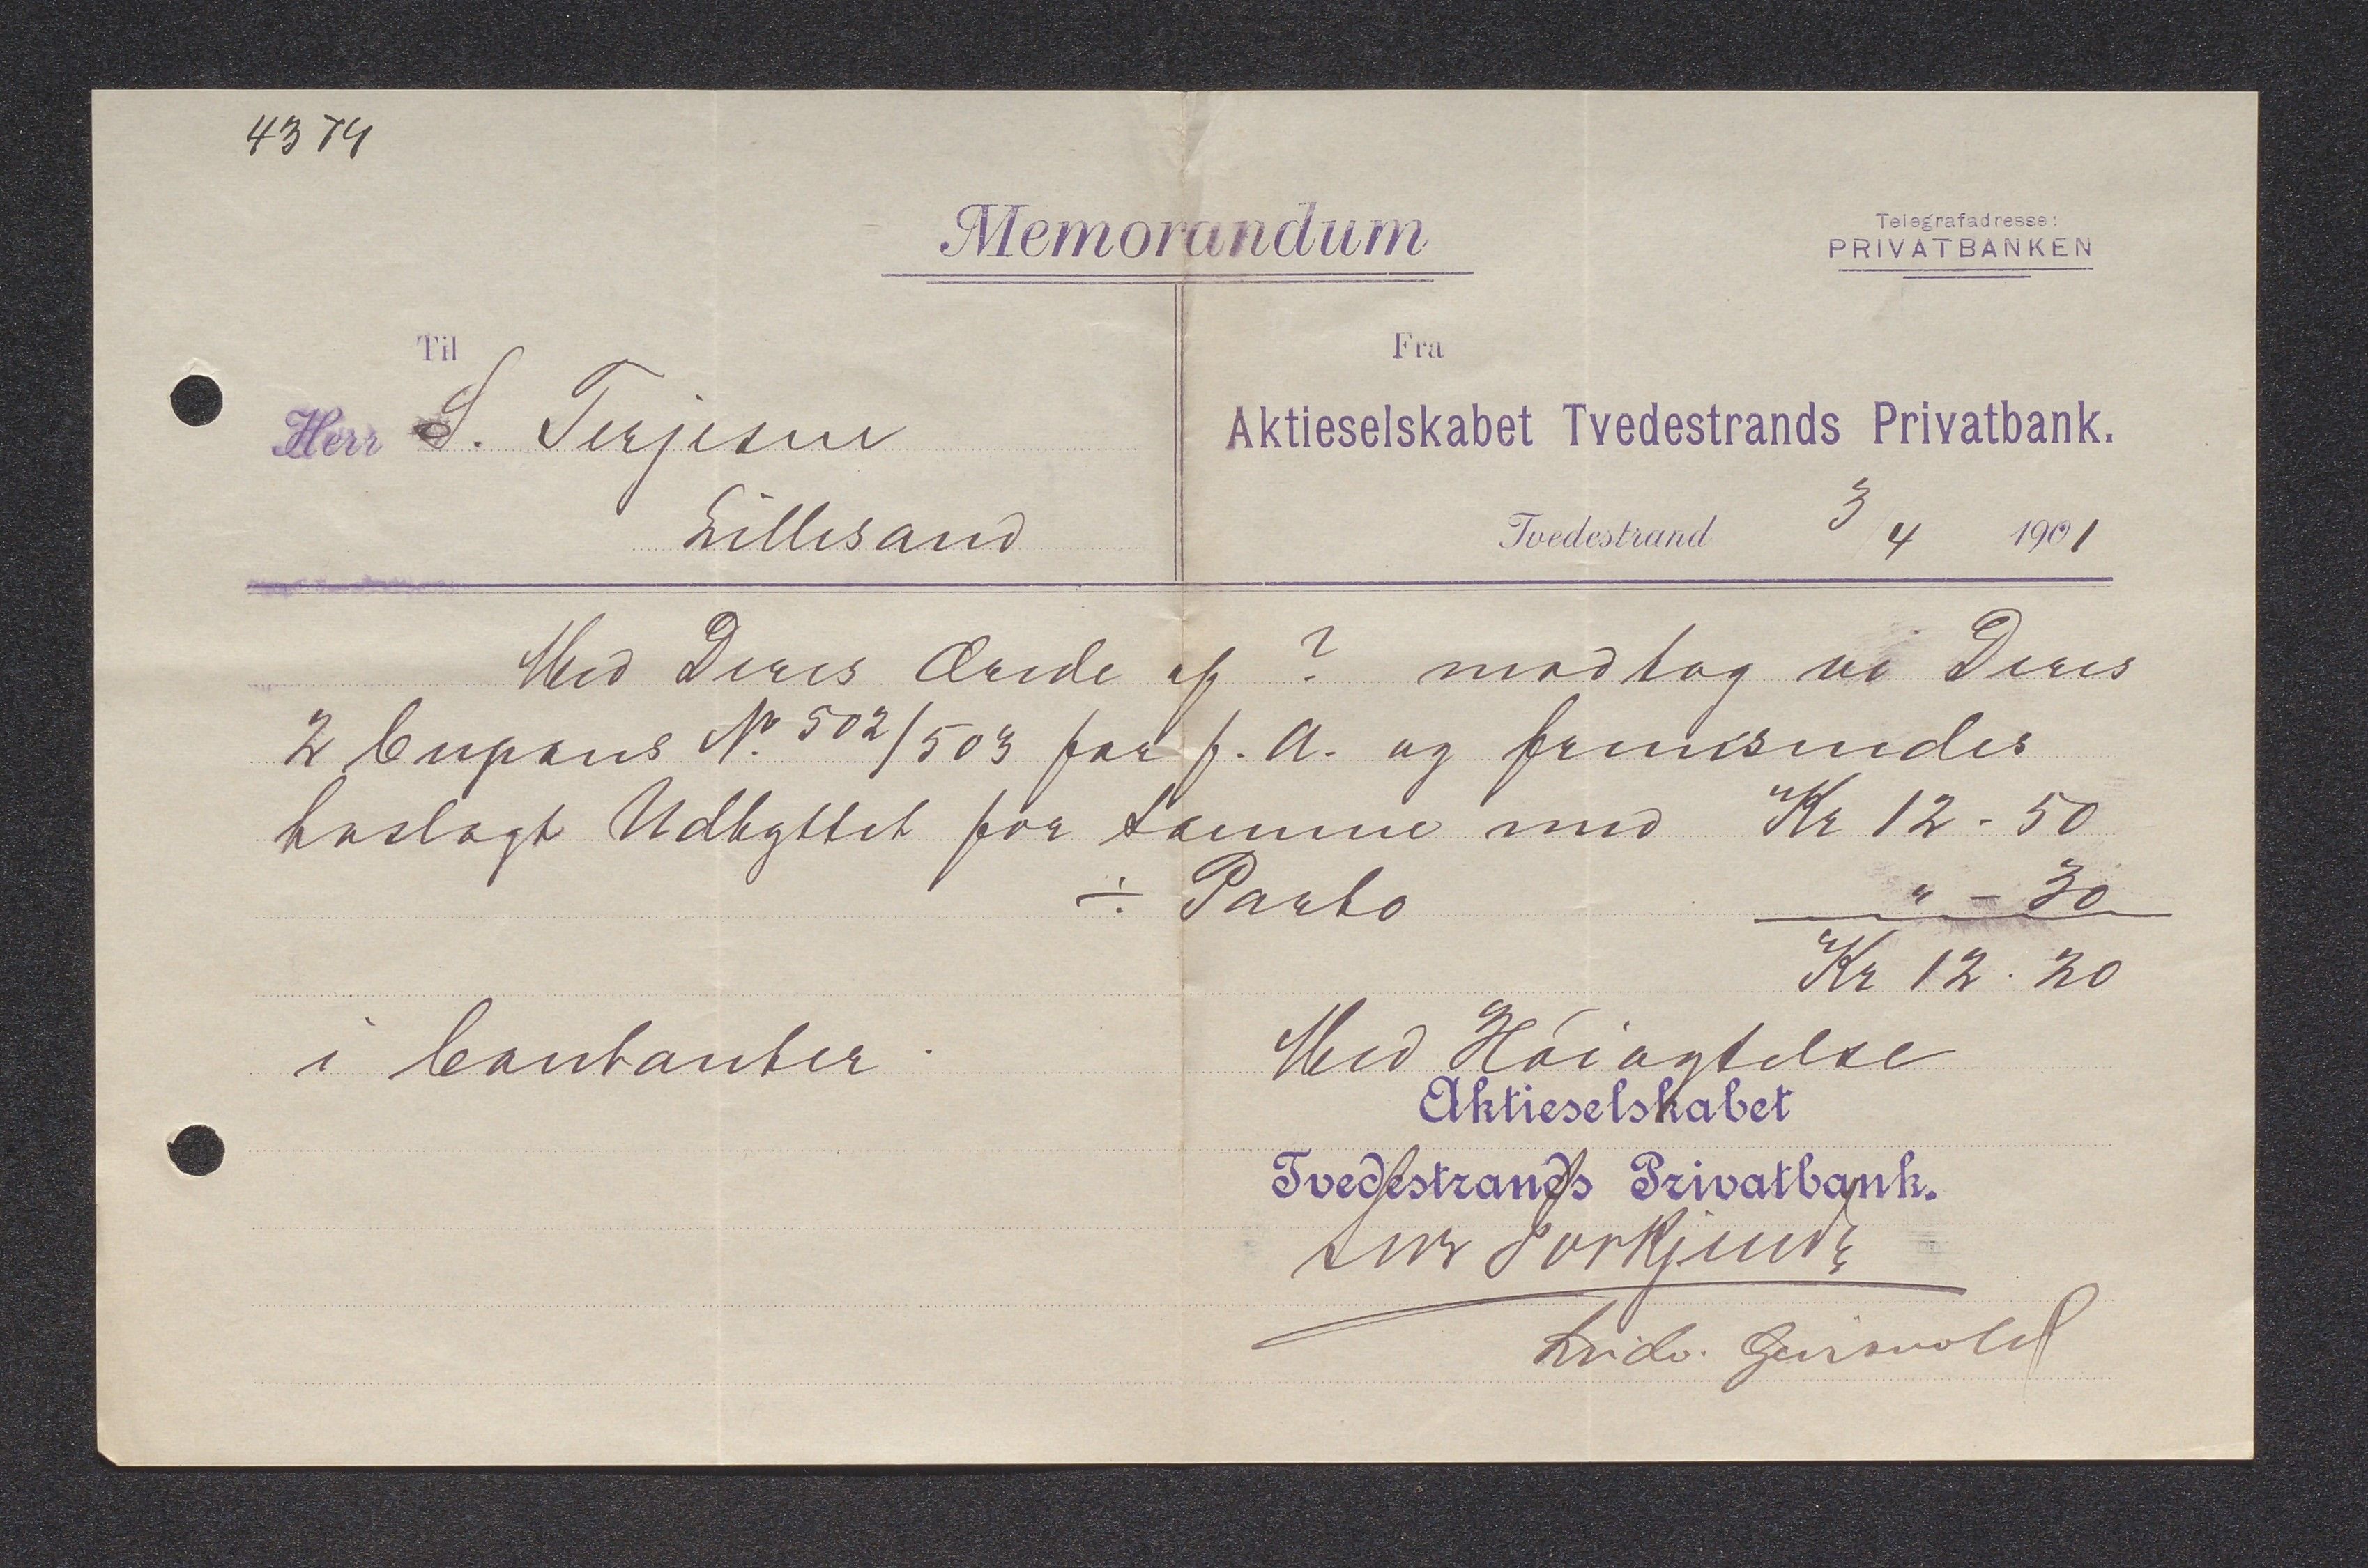 4374
Memorandum
Telegrafadresse:
PRIVATBANKEN
Til
Herr S. Terjesen
Lillesand
Fra
Aktieselskabet Tvedestrands Privatbank.
Tvedestrand 3/4 1901
Med Deres Ærede af ? modtog vi Deres
2 Cupons No. 502/503 for f. A. og fremsendes
hoslagt Udbyttet for samme med Kr 12 - 50
÷ Porto " - 30
Kr 12 . 20
i Contanter.
Med Höiagtelse
Aktieselskabet
Tvedestrands Privatbank.